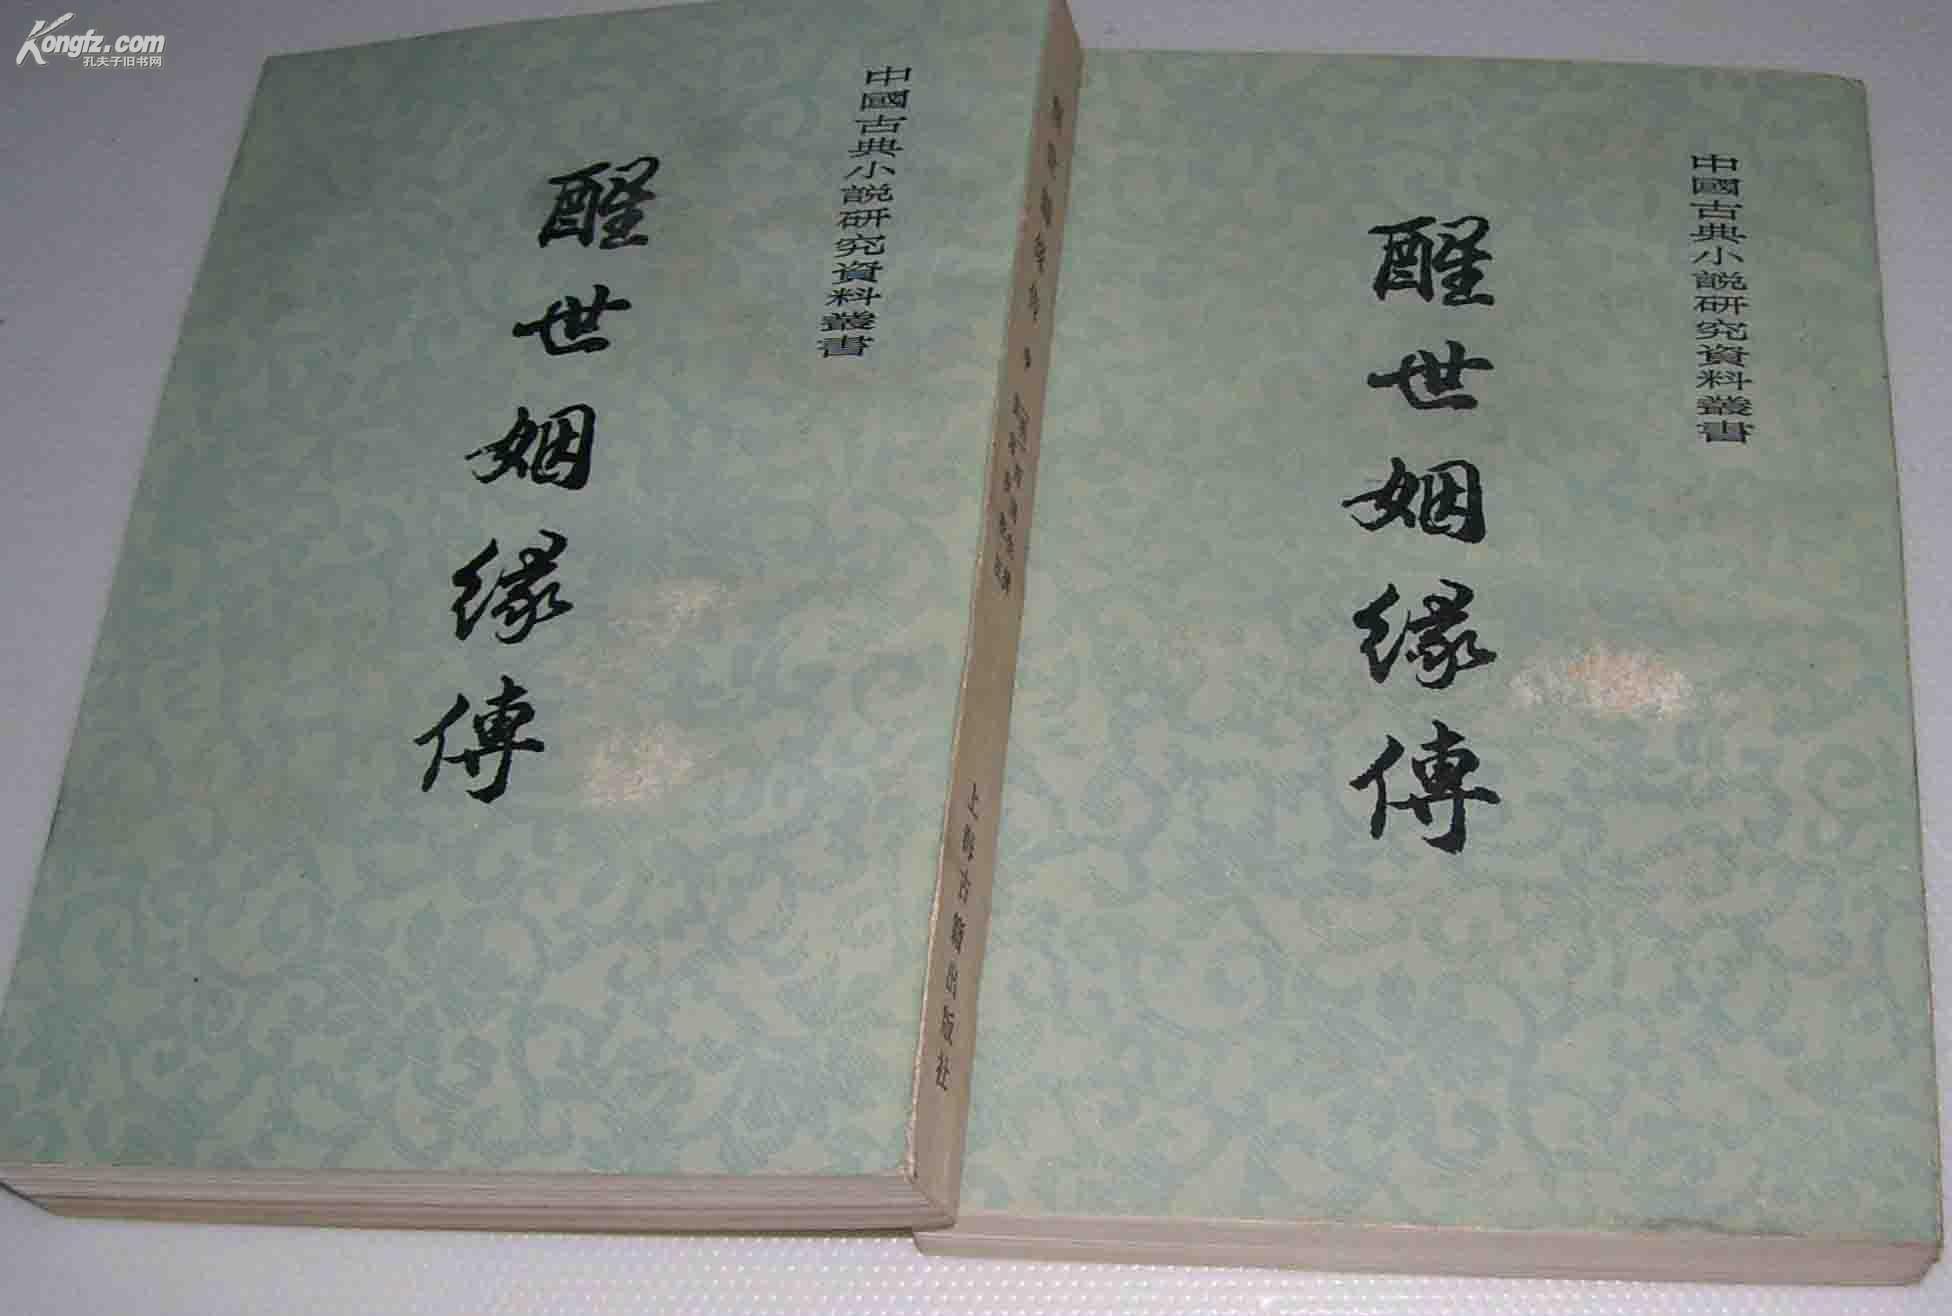 Kongfz.com
孔夫子旧书网
中國古典小説研究資料叢書
醒世姻缘傳
上海古籍出版社
中國古典小説研究資料叢書
醒世姻缘傳